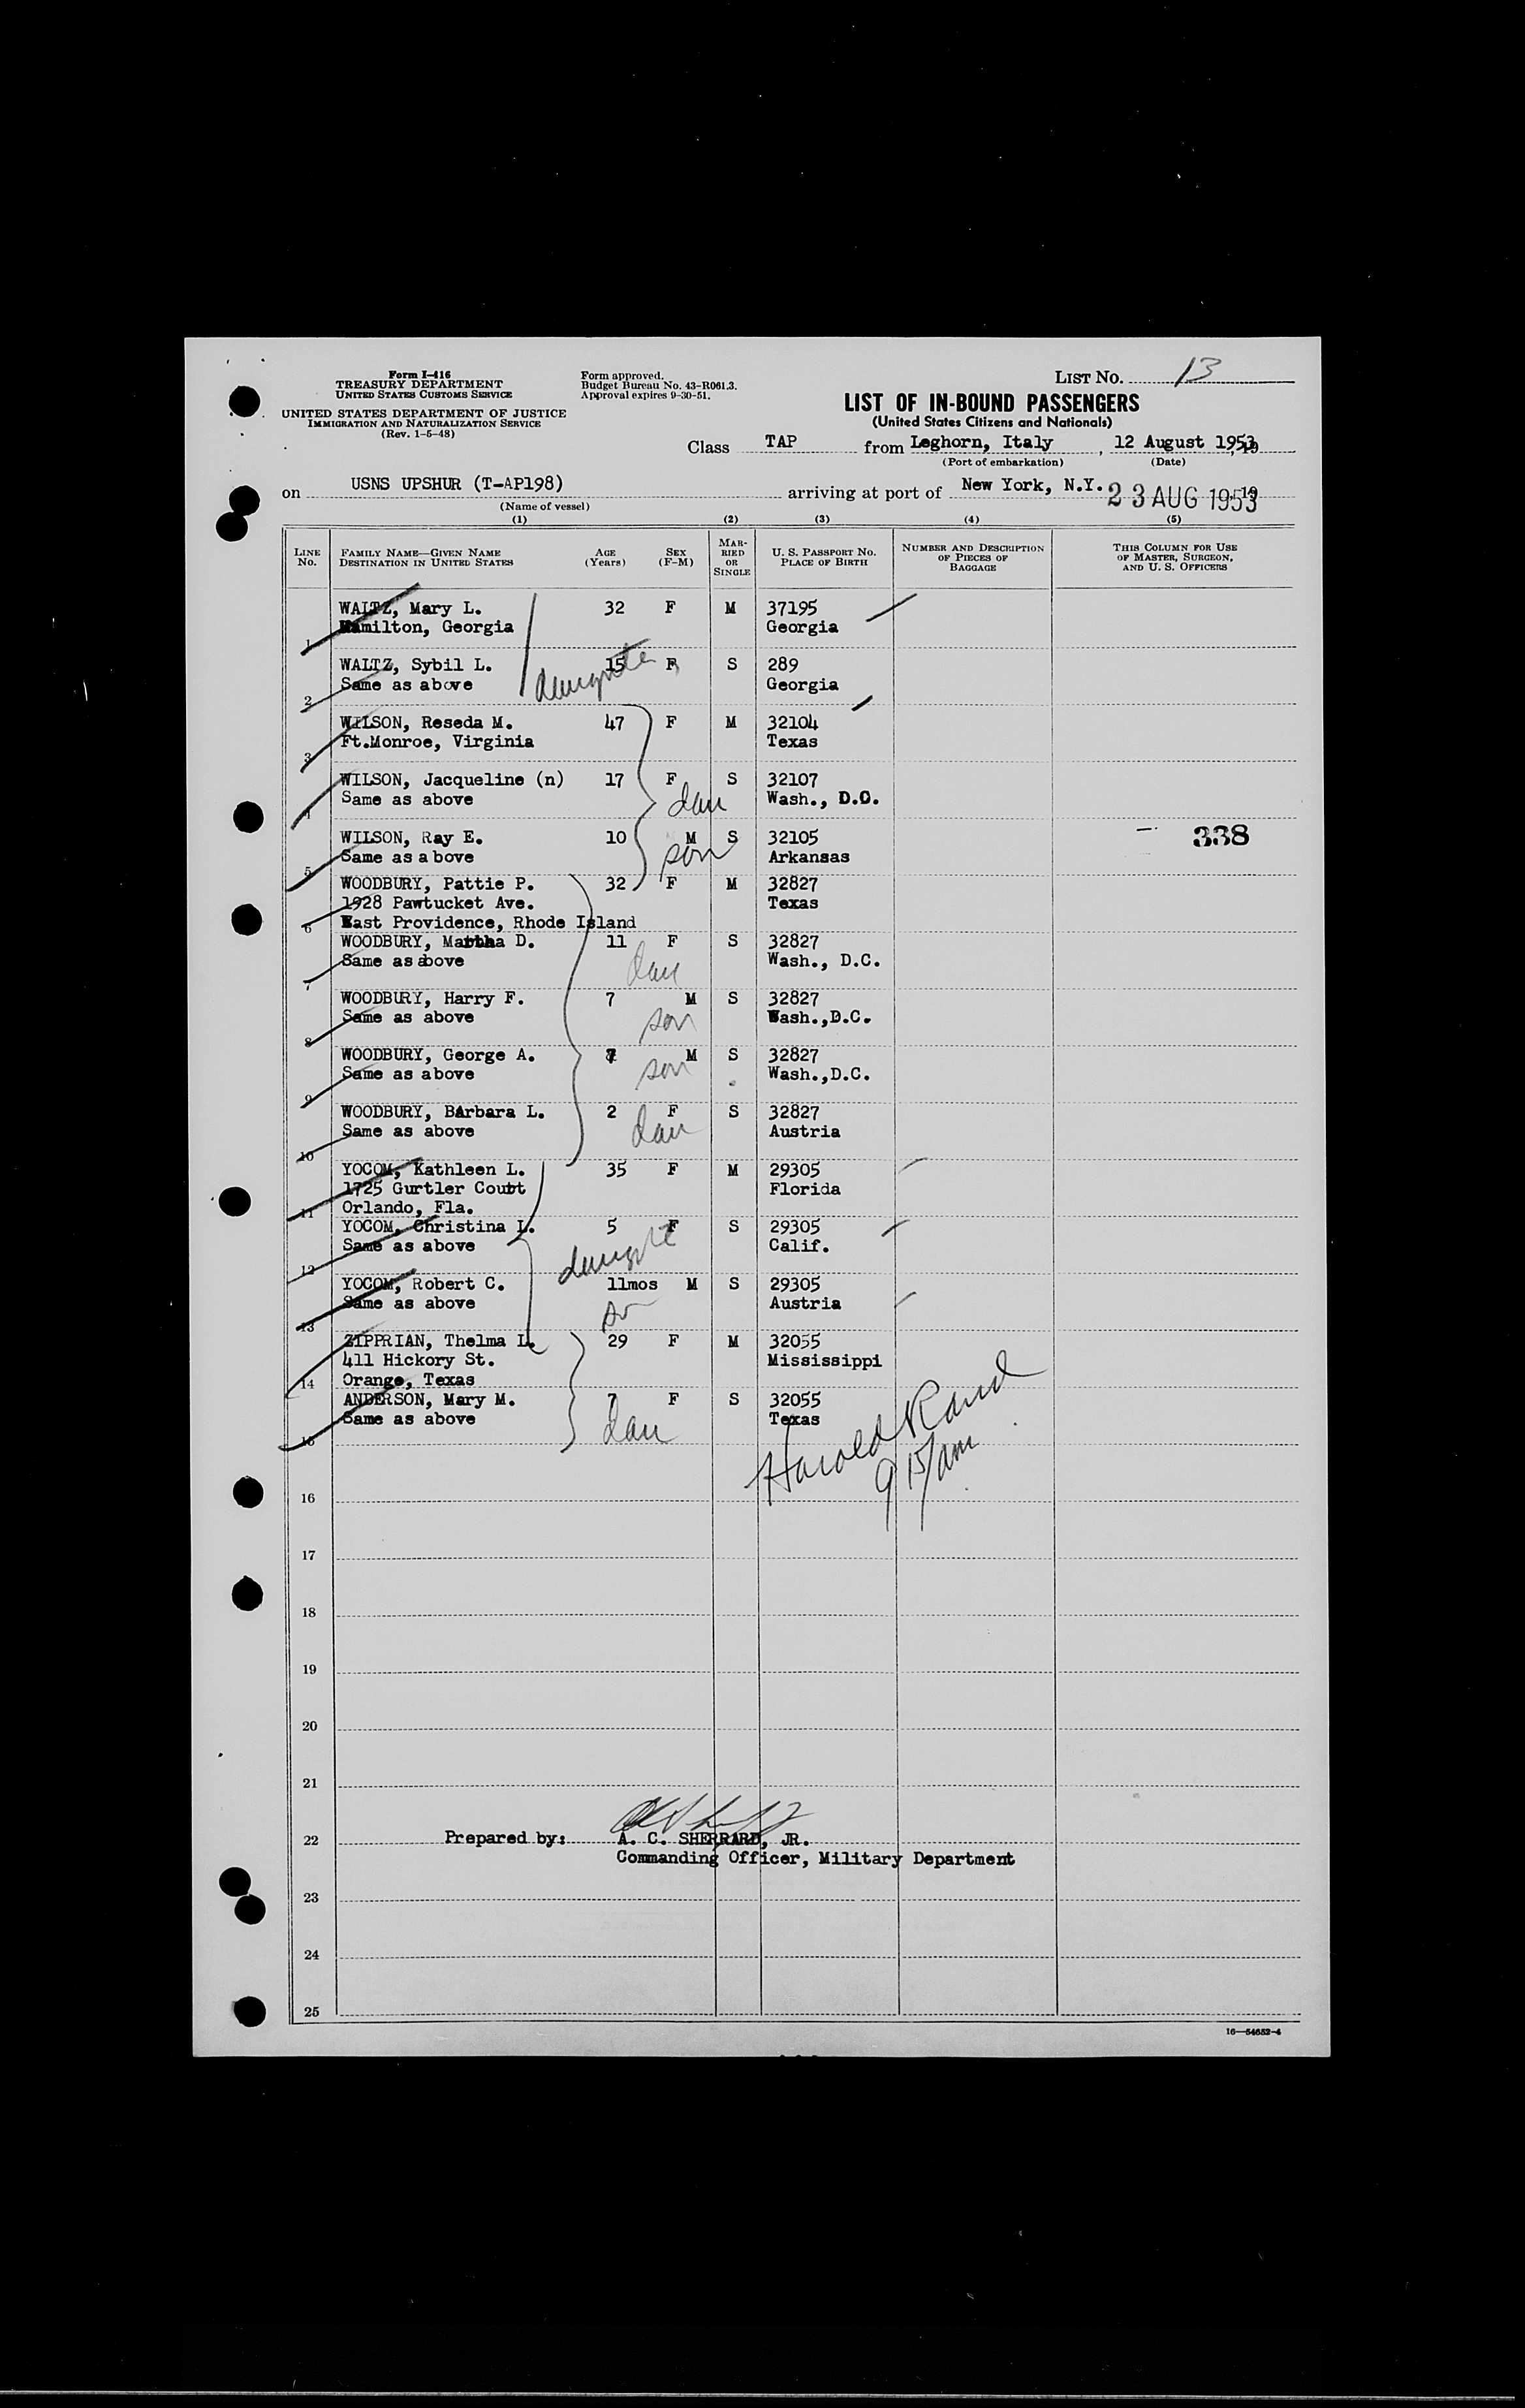 Form I-416
TREASURY DEPARTMENT
UNITED STATES CUSTOMS SERVICE
UNITED STATES DEPARTMENT OF JUSTICE
IMMIGRATION AND NATURALIZATION SERVICE
(Rev. 1-5-48)
Form approved.
Budget Bureau No. 43-R061.3.
Approval expires 9-30-51.
LIST No. 13
LIST OF IN-BOUND PASSENGERS
(United States Citizens and Nationals)
Class TAP from Leghorn, Italy, 12 August 1953
(Port of embarkation) (Date)
on USNS UPSHUR (T-AP198) arriving at port of New York, N.Y. 23 AUG 1953
(Name of vessel)
(1) (2) (3) (4) (5)
LINE No. FAMILY NAME—GIVEN NAME DESTINATION IN UNITED STATES AGE (Years) SEX (F-M) MARRIED OR SINGLE U. S. PASSPORT No. PLACE OF BIRTH NUMBER AND DESCRIPTION OF PIECES OF BAGGAGE THIS COLUMN FOR USE OF MASTER, SURGEON, AND U. S. OFFICERS
WALTZ, Mary L. 32 F M 37195
1 Hamilton, Georgia Georgia
WALTZ, Sybil L. 15 F S 289
2 Same as above daughter Georgia
WILSON, Reseda M. 47 F M 32104
3 Ft.Monroe, Virginia Texas
WILSON, Jacqueline (n) 17 F S 32107
4 Same as above dau Wash., D.C.
WILSON, Ray E. 10 M S 32105 338
5 Same as above son Arkansas
WOODBURY, Pattie P. 32 F M 32827
1928 Pawtucket Ave. Texas
6 East Providence, Rhode Island
WOODBURY, Martha D. 11 F S 32827
7 Same as above dau Wash., D.C.
WOODBURY, Harry F. 7 M S 32827
8 Same as above son Wash.,D.C.
WOODBURY, George A. M S 32827
9 Same as above son Wash.,D.C.
WOODBURY, Barbara L. 2 F S 32827
10 Same as above dau Austria
YOCOM, Kathleen L. 35 F M 29305
1725 Gurtler Coutt Florida
11 Orlando, Fla.
YOCOM, Christina L. 5 F S 29305
12 Same as above Calif.
YOCOM, Robert C. 11mos M S 29305
13 Same as above Austria
ZIPPRIAN, Thelma L. 29 F M 32055
411 Hickory St. Mississippi
14 Orange, Texas
ANDERSON, Mary M. 7 F S 32055
15 Same as above dau Texas
Harold Rand
9 15/am
16
17
18
19
20
21
22 Prepared by: A. C. SHERRARD, JR.
Commanding Officer, Military Department
23
24
25
16—54652-4